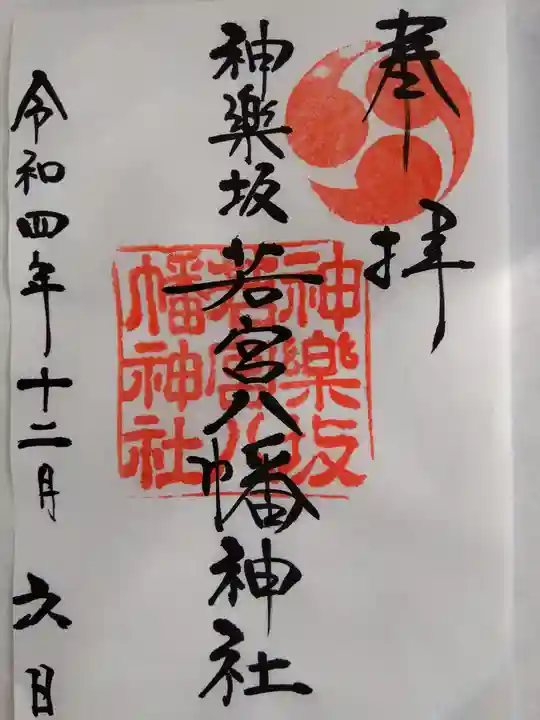 奉拝
神楽坂若宮八幡神社
神楽坂
若宮八
幡神社
令和四年十二月六日